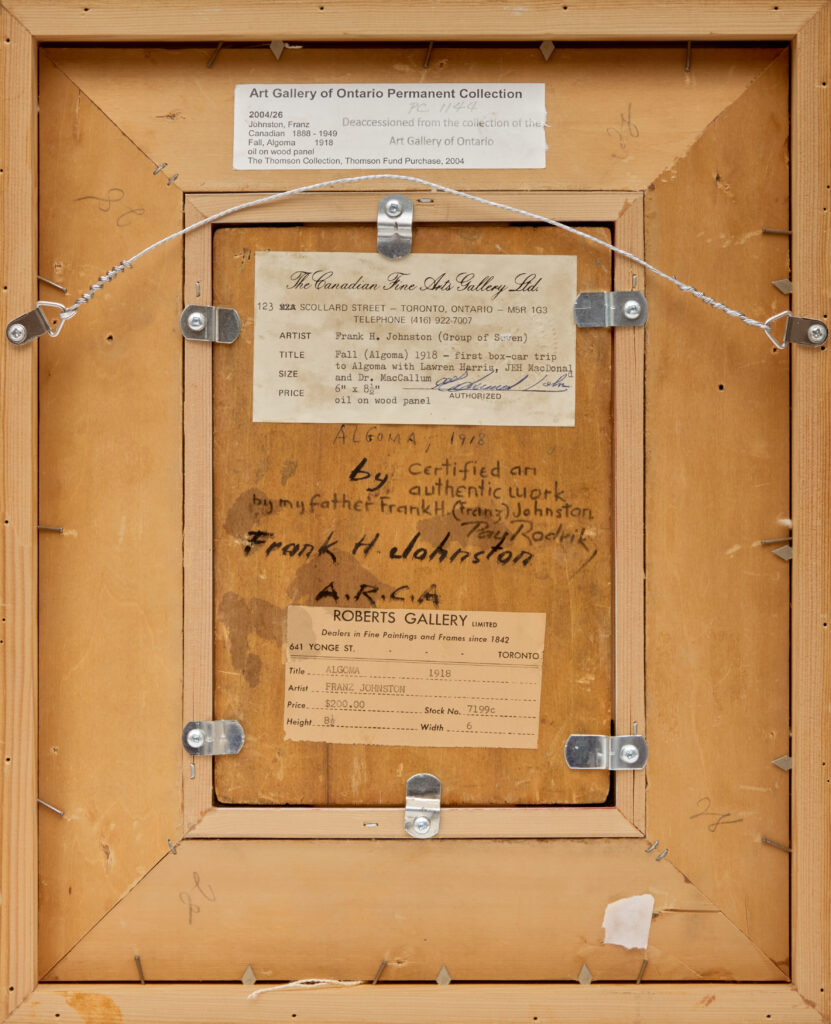 Art Gallery of Ontario Permanent Collection
PC 1144
2004/26
Deaccessioned from the collection of the
Johnston, Franz
Canadian 1888 - 1949
Art Gallery of Ontario
Fall, Algoma 1918
oil on wood panel
The Thomson Collection, Thomson Fund Purchase, 2004
The Canadian Fine Arts Gallery Ltd.
123 22A SCOLLARD STREET – TORONTO, ONTARIO – M5R 1G3
TELEPHONE (416) 922-7007
ARTIST Frank H. Johnston (Group of Seven)
TITLE Fall (Algoma) 1918 - first box-car trip
to Algoma with Lawren Harris, JEH MacDonald
SIZE and Dr. MacCallum
PRICE 6" x 8½"
AUTHORIZED
oil on wood panel
ALGOMA, 1918
by Certified an
authentic work
by my father Frank H. (Franz) Johnston
Frank H. Johnston
A.R.C.A
ROBERTS GALLERY LIMITED
Dealers in Fine Paintings and Frames since 1842
641 YONGE ST. - - - TORONTO
Title ALGOMA 1918
Artist FRANZ JOHNSTON
Price $200.00 Stock No. 7199c
Height 8½ Width 6